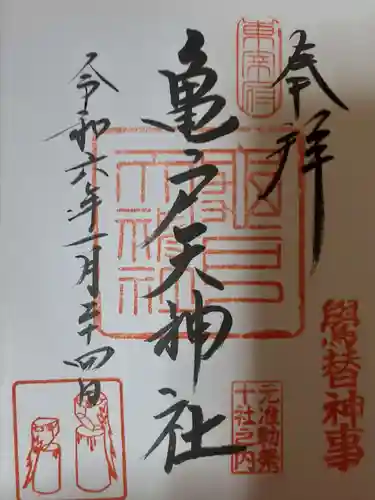 奉拝
東宰府
亀戸天神社
鷽替神事
元准勅祭
十社之内
令和六年一月二十四日